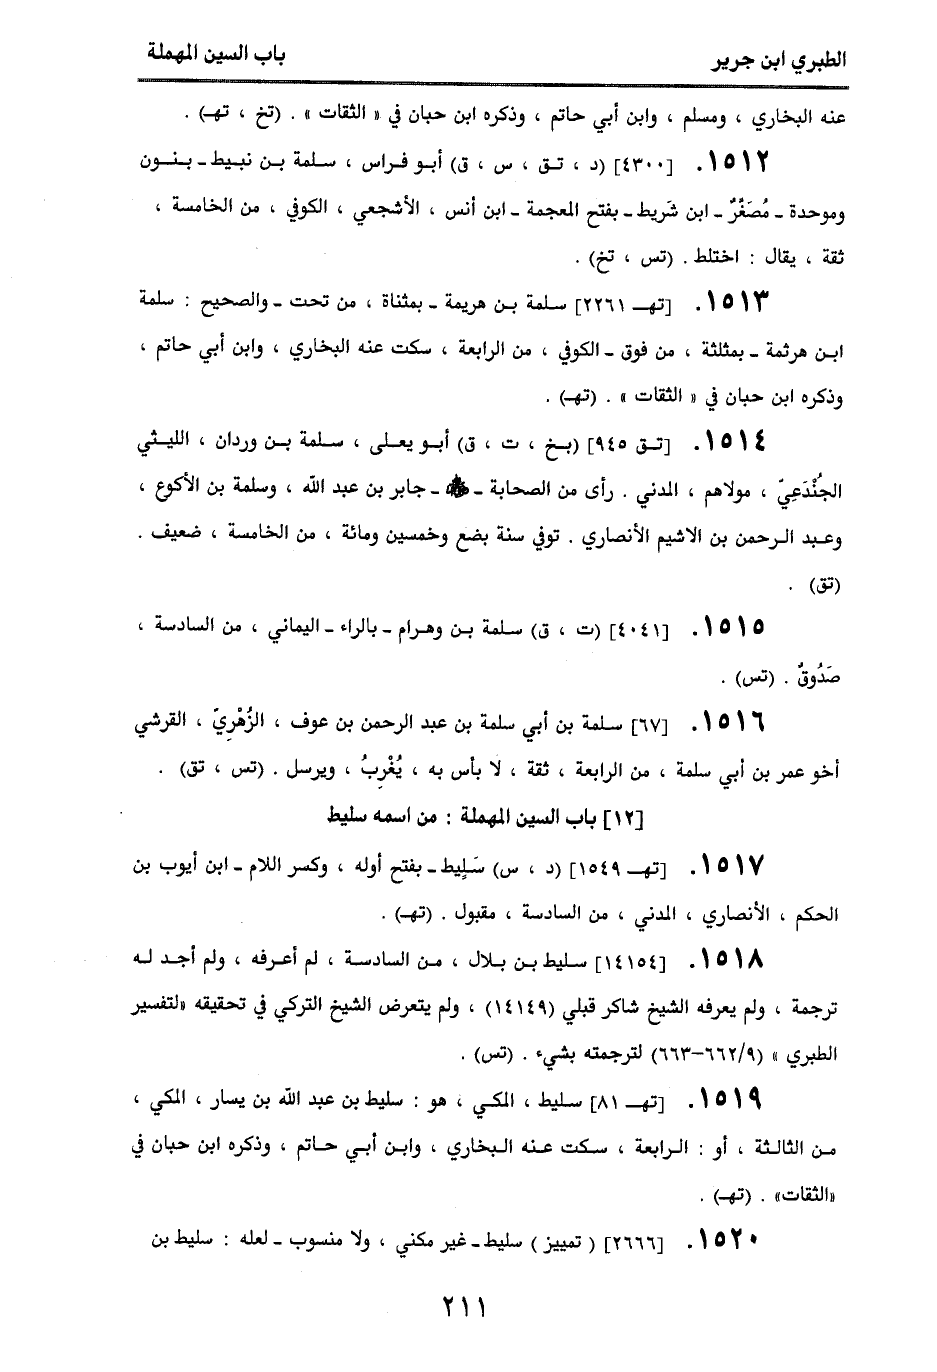 الطبري ابن جرير
باب السين المهملة
عنه البخاري ، ومسلم ، وابن أبي حاتم ، وذكره ابن حبان في « الثقات » . (تخ ، تهـ) .
١٥١٢. [٤٣٠٠] (د ، تـق ، س ، ق) أبـو فـراس ، سـلمة بـن نبيـط ـ بـنـون
وموحدة ـ مُصَغَّرٌ ـ ابن شَريط ـ بفتح المعجمة ـ ابن أنس ، الأشجعي ، الكوفي ، من الخامسة ،
ثقة ، يقال : اختلط . (تس ، تخ) .
١٥١٣. [تهـ ٢٢٦١] سلمة بـن هريمة ـ بمثناة ، مـن تحـت ـ والصحيح : سلمة
ابـن هرثمة ـ بمثلثة ، من فوق ـ الكوفي ، من الرابعة ، سكت عنه البخاري ، وابن أبي حاتم ،
وذكره ابن حبان في « الثقات » . (تهـ) .
١٥١٤. [تـق ٩٤٥] (بـخ ، ت ، ق) أبـو يعـلى ، سـلمة بـن وردان ، الليـثي
الجُنْدَعِيّ ، مولاهم ، المدني . رأى من الصحابة ـ ـ جابر بن عبد الله ، وسلمة بن الأكوع ،
وعـبد الـرحمن بن الاشيم الأنصاري . توفي سنة بضع وخمسين ومائة ، من الخامسة ، ضعيف .
(تق) .
١٥١٥. [٤٠٤١] (ت ، ق) سلمة بـن وهـرام ـ بالراء ـ اليماني ، من السادسة ،
صَدُوقٌ . (تس) .
١٥١٦. [٦٧] سلمة بن أبي سلمة بن عبد الرحمن بن عوف ، الزُهْريّ ، القرشي
أخو عمر بن أبي سلمة ، من الرابعة ، ثقة ، لا بأس به ، يُغْرِبُ ، ويرسل . (تس ، تق) .
[١٢] باب السين المهملة : من اسمه سليط
١٥١٧. [تهـ ١٥٤٩] (د ، س) سَلِيط ـ بفتح أوله ، وكسر اللام ـ ابن أيوب بن
الحكم ، الأنصاري ، المدني ، من السادسة ، مقبول . (تهـ) .
١٥١٨. [١٤١٥٤] سـليط بـن بـلال ، مـن السادسـة ، لم أعـرفه ، ولم أجـد لـه
ترجمة ، ولم يعرفه الشيخ شاكر قبلي (١٤١٤٩) ، ولم يتعرض الشيخ التركي في تحقيقه «لتفسير
الطبري » (٩/‏٦٦٢–٦٦٣) لترجمته بشيء . (تس) .
١٥١٩. [تهـ ٨١] سـليط ، المكـي ، هو : سليط بن عبد الله بن يسار ، المكي ،
مـن الثالـثة ، أو : الـرابعة ، سـكت عـنه الـبخاري ، وابـن أبـي حـاتم ، وذكره ابن حبان في
«الثقات» . (تهـ) .
١٥٢٠. [٢٦٦٦] ( تمييز ) سليط ـ غير مكني ، ولا منسوب ـ لعله : سليط بن
٢١١